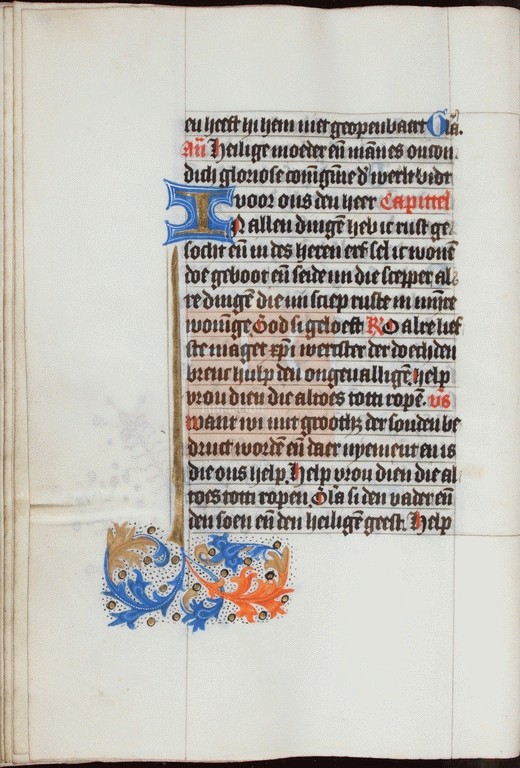 en heeft hi hem niet geopenbaart Gl̄a.
Añ Heilige moeder eñ mānes oncon
dich gloriose coniginne d' werlt bidt
voor ons den heer Capittel
In allen dingē heb ic rust ge
socht eñ in des heren erf sel ic wonē
doe geboot eñ seide mi die scepper al
re dingē die mi sciep ruste in mijnre
wonīge God si geloeft Ro Alre lief
ste maget xp̄i wercster der doechden
breng hulp den ongeualligē help
vrou dien die altoes totti ropē. v̄s
want wi mit grooth' der sonden be
druct wordē eñ daer nyement en is
die ons help. Help vrou dien die al
toes totti ropen Gl̄a si den vader eñ
den soen eñ den heiligē geest. Help